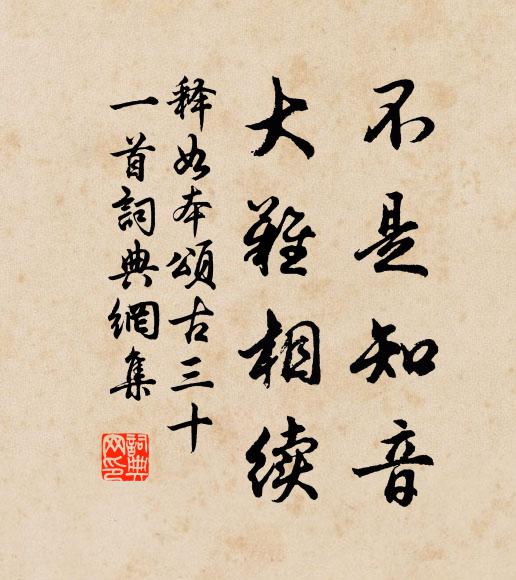 不是知音
大難相續
释如本頌古三十
一首詞典網集
詞典网印